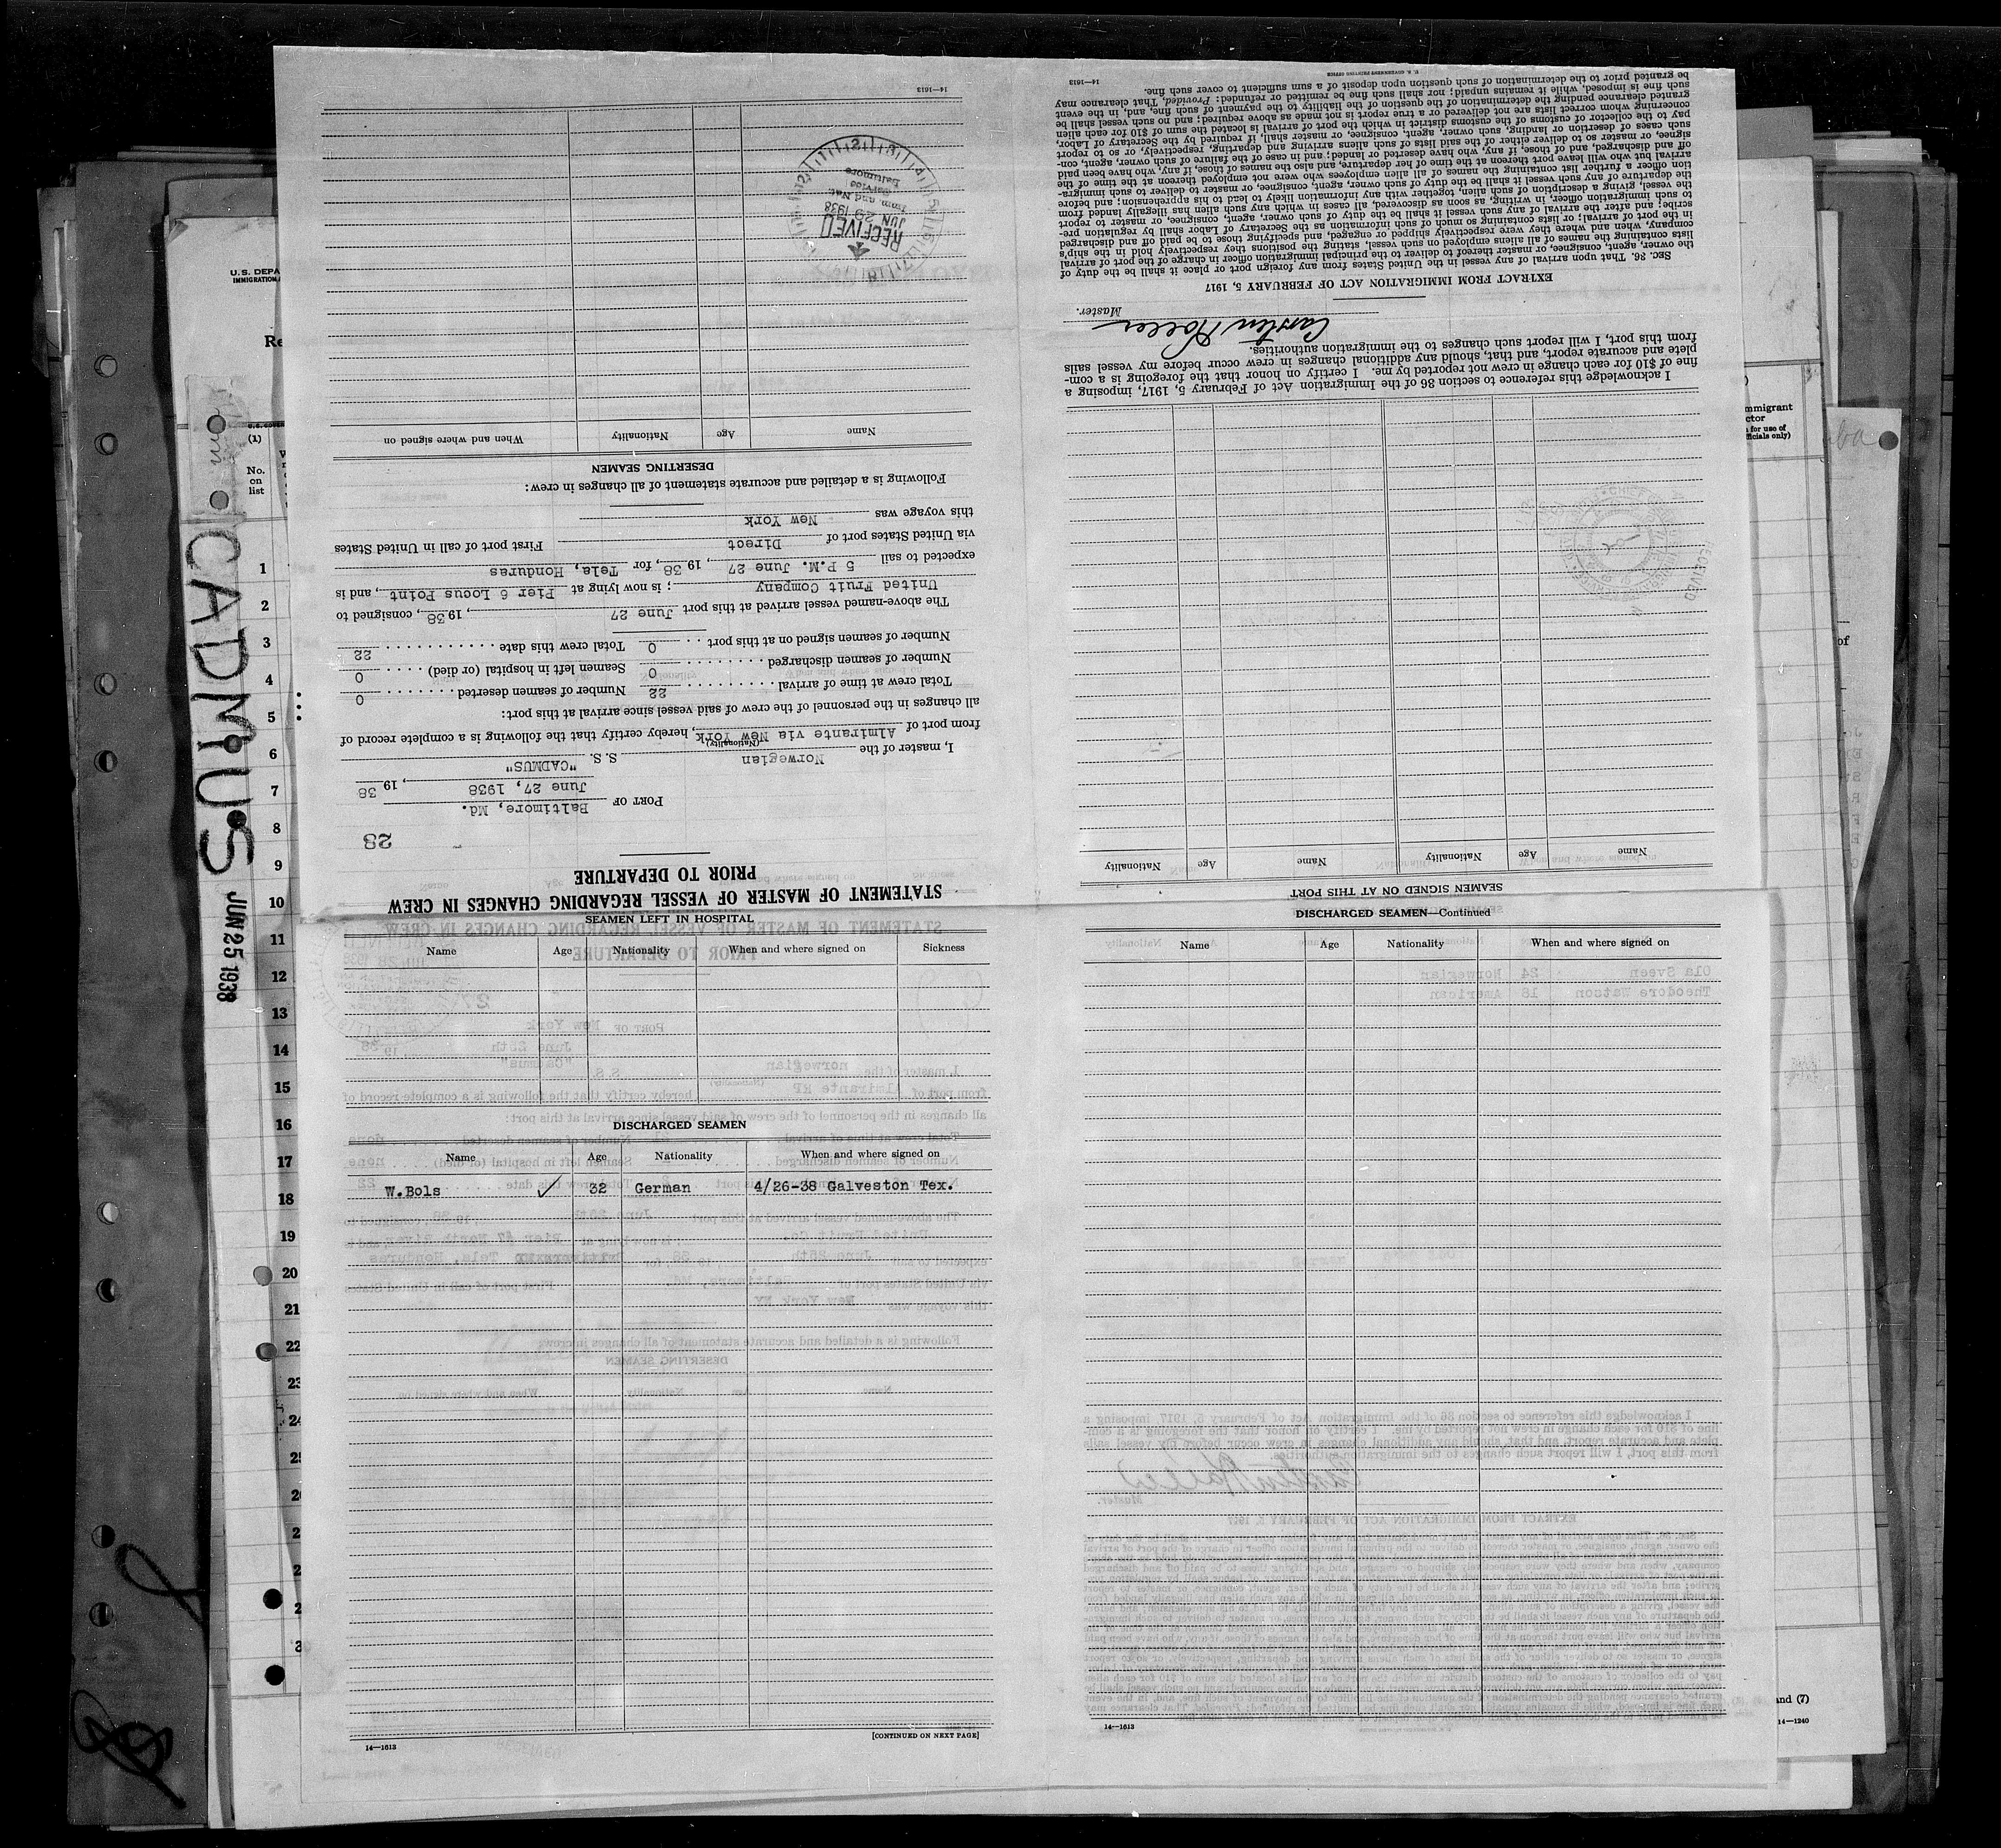 U.S. DEPA
IMMIGRATION
Re
(1)
No.
on
list
1
2
3
4
5
6
7
8
9
10
11
12
13
14
15
16
17
18
19
20
21
22
23
24
25
CADMUS
JUN 25 1938
STATEMENT OF MASTER OF VESSEL REGARDING CHANGES IN CREW
PRIOR TO DEPARTURE
28
PORT OF Baltimore, Md.
June 27, 1938, 1938
I, master of the Norwegian S. S. "CADMUS"
(Nationality)
from port of Almirante via New York, hereby certify that the following is a complete record of
all changes in the personnel of the crew of said vessel since arrival at this port:
Total crew at time of arrival 22 Number of seamen deserted 0
Number of seamen discharged 0 Seamen left in hospital (or died) 0
Number of seamen signed on at this port 0 Total crew this date 22
The above-named vessel arrived at this port June 27, 1938, consigned to
United Fruit Company; is now lying at Pier 6 Locus Point, and is
expected to sail 5 P.M. June 27, 1938, for Tela, Honduras
via United States port of Direct First port of call in United States
this voyage was New York
Following is a detailed and accurate statement of all changes in crew:
DESERTING SEAMEN
Name Age Nationality When and where signed on
RECEIVED
JUN 29 1938
Imm. and Nat.
Service
Baltimore
14—1613
SEAMEN SIGNED ON AT THIS PORT
Name Age Nationality Name Age Nationality
I acknowledge this reference to section 36 of the Immigration Act of February 5, 1917, imposing a
fine of $10 for each change in crew not reported by me. I certify on honor that the foregoing is a com-
plete and accurate report, and that, should any additional changes in crew occur before my vessel sails
from this port, I will report such changes to the immigration authorities.
Master.
EXTRACT FROM IMMIGRATION ACT OF FEBRUARY 5, 1917
SEC. 36. That upon arrival of any vessel in the United States from any foreign port or place it shall be the duty of
the owner, agent, consignee, or master thereof to deliver to the principal immigration officer in charge of the port of arrival
lists containing the names of all aliens employed on such vessel, stating the positions they respectively hold in the ship's
company, when and where they were respectively shipped or engaged, and specifying those to be paid off and discharged
in the port of arrival; or lists containing so much of such information as the Secretary of Labor shall by regulation pre-
scribe; and after the arrival of any such vessel it shall be the duty of such owner, agent, consignee, or master to report
to such immigration officer, in writing, as soon as discovered, all cases in which any such alien has illegally landed from
the vessel, giving a description of such alien, together with any information likely to lead to his apprehension; and before
the departure of any such vessel it shall be the duty of such owner, agent, consignee, or master to deliver to such immigra-
tion officer a further list containing the names of all alien employees who were not employed thereon at the time of the
arrival but who will leave port thereon at the time of her departure, and also the names of those, if any, who have been paid
off and discharged, and of those, if any, who have deserted or landed; and in case of the failure of such owner, agent, con-
signee, or master so to deliver either of the said lists of such aliens arriving and departing, respectively, or so to report
such cases of desertion or landing, such owner, agent, consignee, or master shall, if required by the Secretary of Labor,
pay to the collector of customs of the customs district in which the port of arrival is located the sum of $10 for each alien
concerning whom correct lists are not delivered or a true report is not made as above required; and no such vessel shall be
granted clearance pending the determination of the question of the liability to the payment of such fine, and, in the event
such fine is imposed, while it remains unpaid; nor shall such fine be remitted or refunded: Provided, That clearance may
be granted prior to the determination of such question upon deposit of a sum sufficient to cover such fine.
14—1613
U. S. GOVERNMENT PRINTING OFFICE
SEAMEN LEFT IN HOSPITAL
Name Age Nationality When and where signed on Sickness
DISCHARGED SEAMEN
Name Age Nationality When and where signed on
W.Bols 32 German 4/26-38 Galveston Tex.
14—1613
[CONTINUED ON NEXT PAGE]
DISCHARGED SEAMEN—Continued
Name Age Nationality When and where signed on
14—1613
and (7)
14—1240